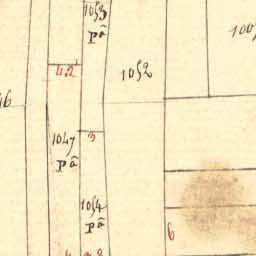 1053
pā
100
42
1052
46
1047
pā
3
1054
pā
6